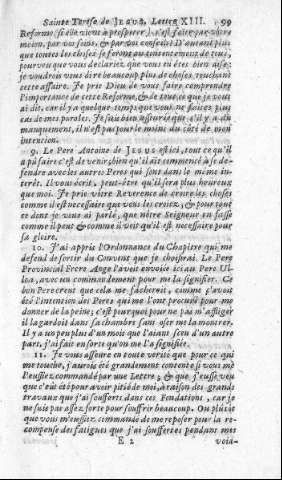 Sainte Terese de JESUS, Lettre XIII. 99
Reforme, (si elle vient à prosperer) s'est faite par vôtre
moïen, par vos soins, & par vos conseils: D'autant plus
que toutes les choses se feront au contentement de tous,
pourveu que vous declariez que vous en étes bien aise;
je voudrois vous dire beaucoup plus de choses, touchant
cette affaire. Je prie Dieu de vous faire comprendre
l'importance de cette Reforme, & de tout ce que je vous
ai dit, car il y a quelque temps que vous ne faites plus
cas de mes paroles. Je suis bien asseurée que s'il y a du
manquement, il n'est pas pour le moins du côté de mon
intention.
9. Le Pere Antoine de JESUS est ici, tout ce qu'il
a pû faire c'est de venir, bien qu'il ait commencé à se de-
fendre avec les autres Peres qui sont dans le même in-
terêt. Il vous écrit, peut-être qu'il sera plus heureux
que moi. Je prie vôtre Reverence de croire les choses
comme il est necessaire que vous les criez, & pour tout
ce dont je vous ai parlé, que nôtre Seigneur en fasse
comme il peut & comme il voit qu'il est necessaire pour
sa gloire.
10. J'ai appris l'Ordonnance du Chapitre qui me
defend de sortir du Convent que je choisirai. Le Pere
Provincial Frere Ange l'avoit envoiée ici au Pere Ul-
loa, avec un commandement pour me la signifier. Ce
bon Pere creut que cela me facheroit, comme ç'avoit
été l'intention des Peres qui me l'ont procuré pour me
donner de la peine; c'est pourquoi pour ne pas m'affliger
il la gardoit dans sa chambre sans oser me la montrer.
Il y a un peu plus d'un mois que l'aiant sceu d'un autre
part, j'ai fait en sorte qu'on me l'a signifiée.
11. Je vous asseure en toute verité que pour ce qui
me touche, j'aurois été grandement contente si vous me
l'eussiez commandé par une Lettre, & que j'eusse veu
que c'eût été pour avoir pitié de moi, à raison des grands
travaux que j'ai soufferts dans ces Fondations, car je
ne suis pas assez forte pour souffrir beaucoup. Ou plûtôt
que vous m'eussiez commandé de me reposer pour la re-
compense des fatigues que j'ai souffertes pendant mes
E 2 voia-